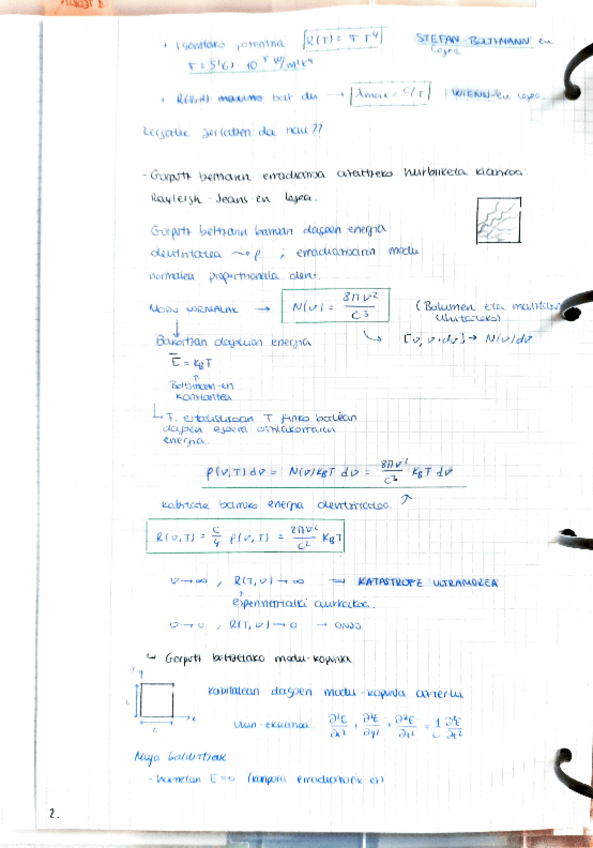 • Igorritako potentzia R(T) = σ T⁴ STEFAN BOLTZMANN en legea
σ = 5'67 10⁻⁸ W/m²K⁴
• R(ν,T) maximo bat du → λmax = C/T WIENN-en legea
Zergatik gertatzen da hau??
- Gorputz beltzaren erradiazioa azaltzeko hurbilketa klasikoa.
Rayleigh - Jeans-en legea.
Gorputz beltzaren barruan dagoen energia
dentsitatea → ρ ; erradiazioaren modu
normalen proportzionala dena.
MODU NORMALAK → N(ν) = 8πν²/C³ (Bolumen eta maiztasun unitateko)
Bakoitzean dagokion energia [ν, ν+dν] → N(ν)dν
E̅ = k_BT
Boltzmann-en
konstantea
T finko batean
dagoen
energia.
ρ(ν,T) dν = N(ν) k_BT dν = 8πν²/C³ k_BT dν
kabitate barruko energia dentsitatea. ↗
R(ν,T) = C/4 ρ(ν,T) = 2πν²/C² k_BT
ν → ∞ , R(T,ν) → ∞ → KATASTROFE ULTRAMOREA
esperimentalki aurkakoa.
ν → 0 , R(T,ν) → 0 → ONDO
↳ Gorputz beltzetako modu-kopurua
y
L kabitatean dagoen modu-kopurua aztertu
x
L Uhin-ekuazioa: ∂²E/∂x² + ∂²E/∂y² + ∂²E/∂z² = 1/C ∂²E/∂t²
Muga baldintzak
- hormetan E=0 (kanpora erradiatzen ez)
2.